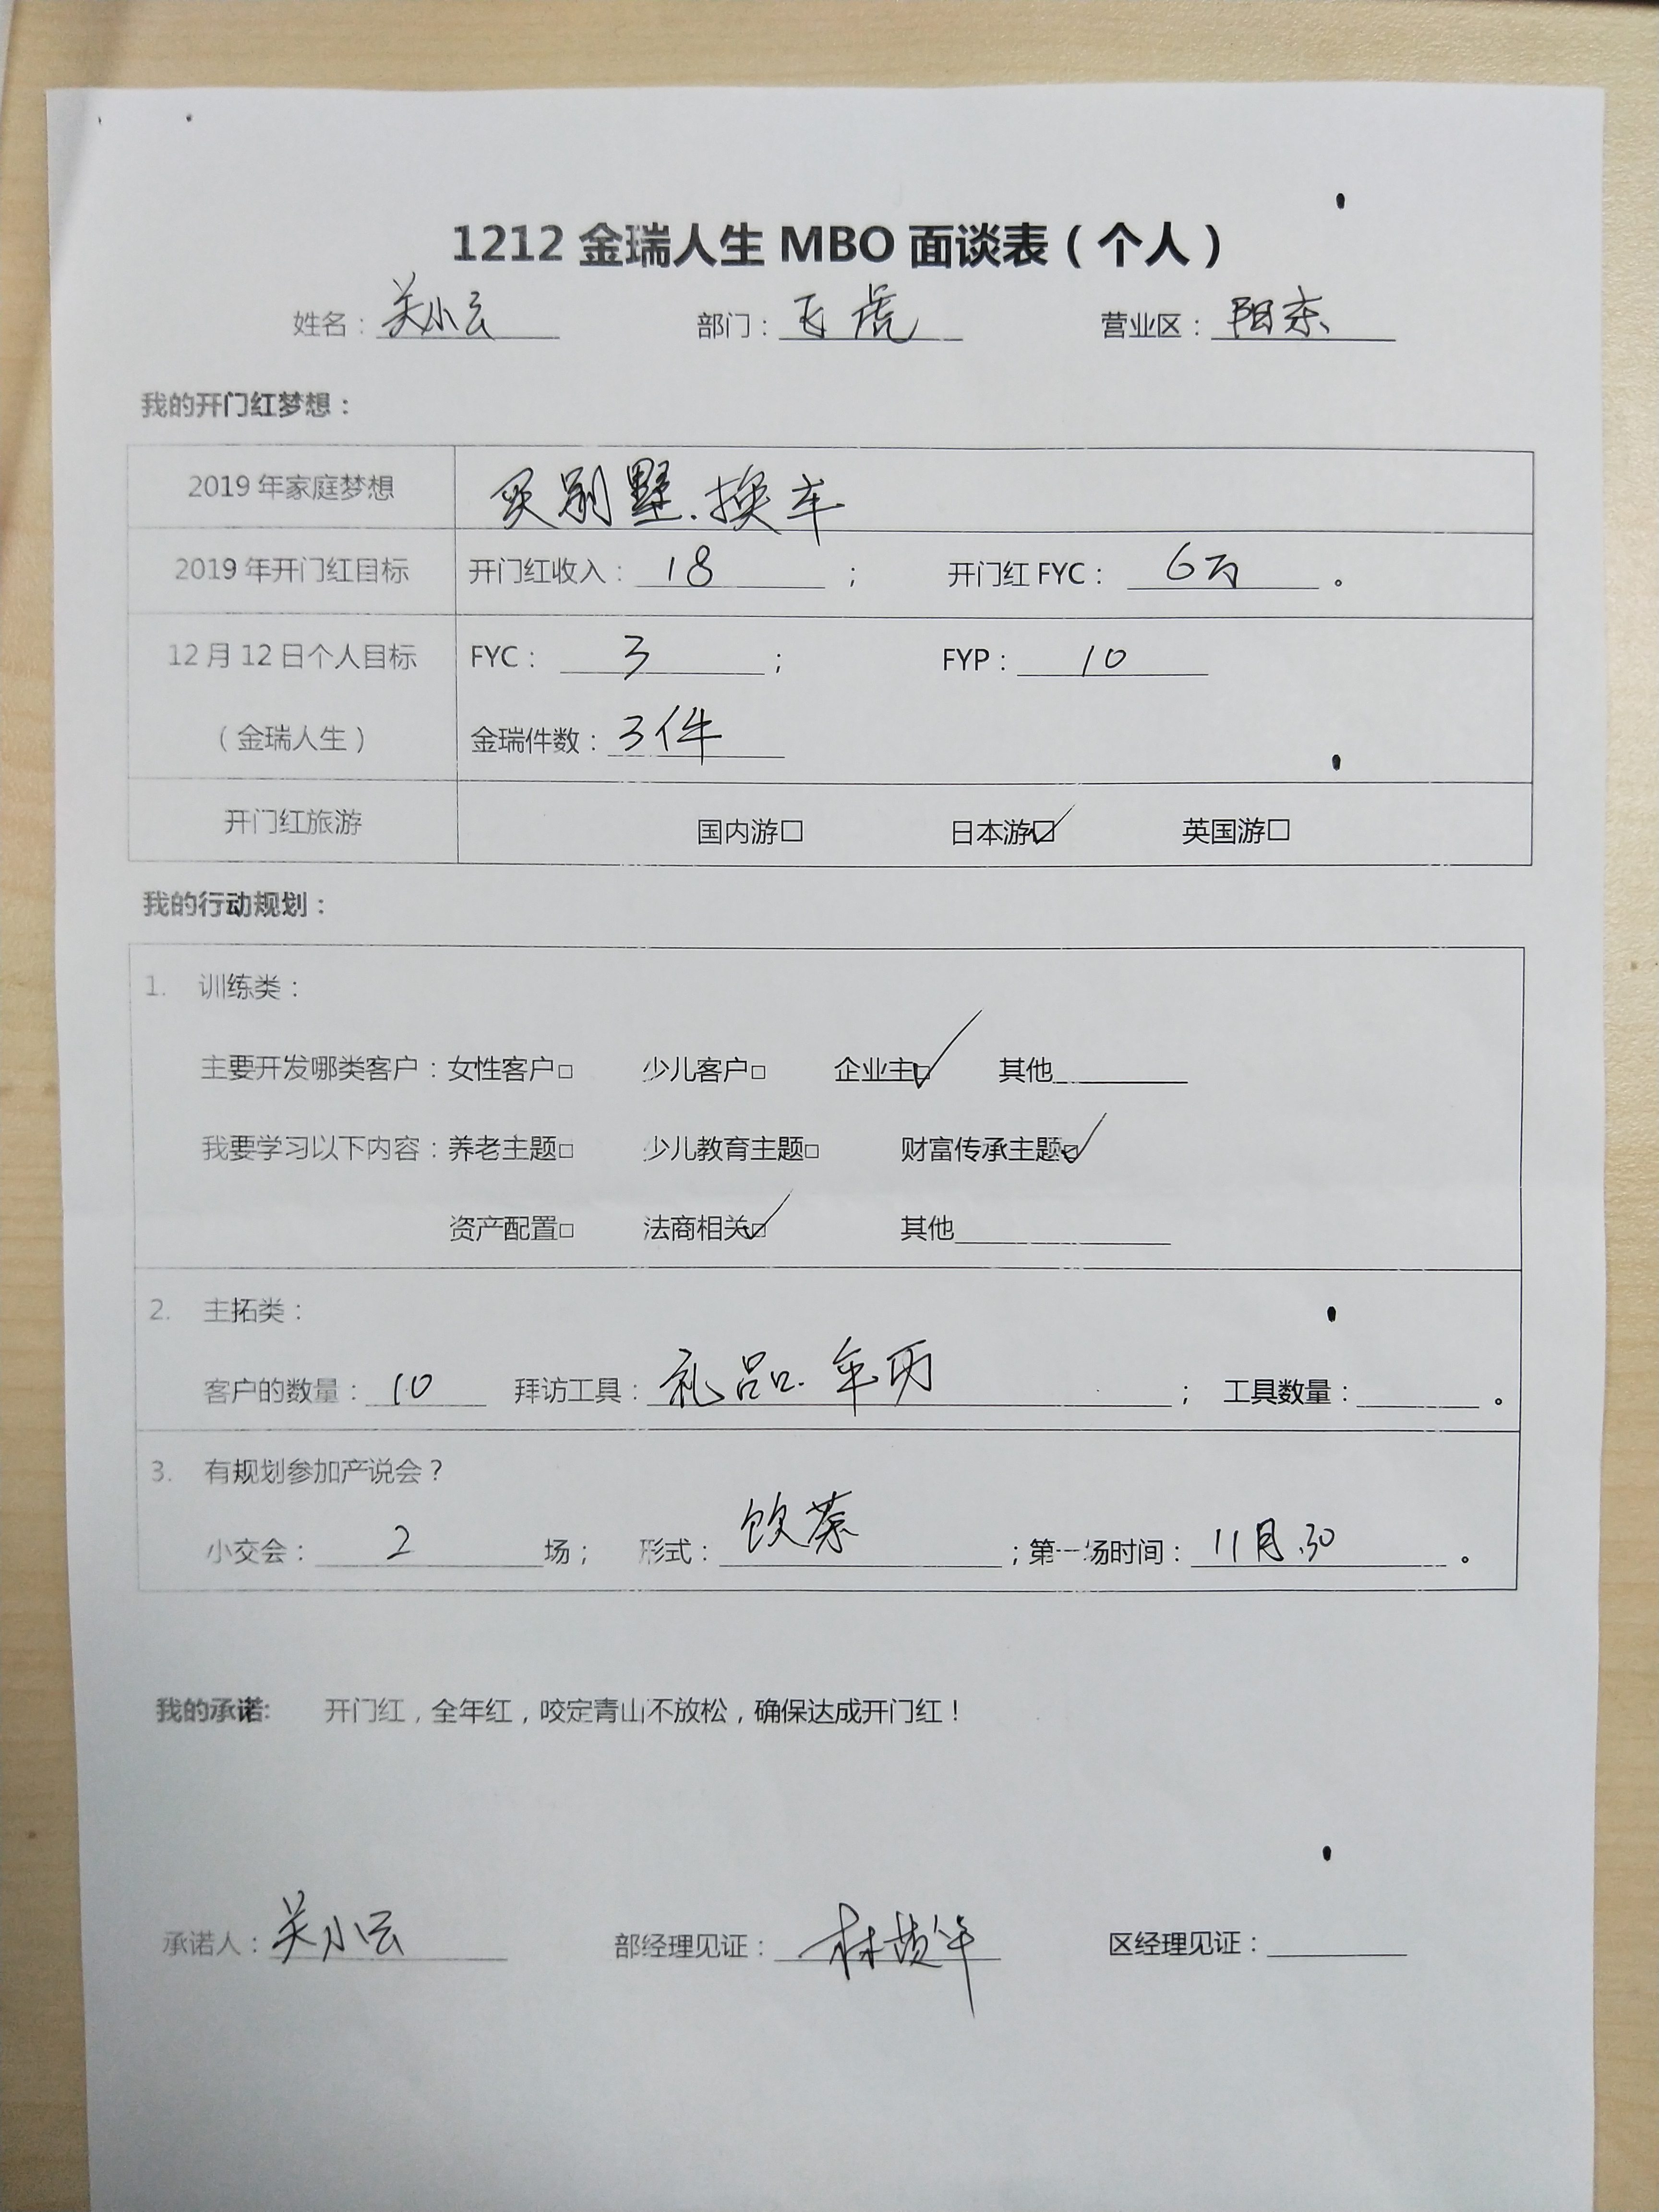 1212 金瑞人生 MBO 面谈表（个人）
姓名：关小云 部门：飞虎 营业区：阳东
我的开门红梦想：
2019 年家庭梦想 买别墅.换车
2019 年开门红目标 开门红收入：18； 开门红 FYC：6万。
12 月 12 日个人目标 FYC：3； FYP：10
（金瑞人生） 金瑞件数：3件
开门红旅游 国内游□ 日本游☑ 英国游□
我的行动规划：
1. 训练类：
主要开发哪类客户：女性客户□ 少儿客户□ 企业主☑ 其他
我要学习以下内容：养老主题□ 少儿教育主题□ 财富传承主题☑
资产配置□ 法商相关☑ 其他
2. 主拓类：
客户的数量：10 拜访工具：礼品.年历； 工具数量：。
3. 有规划参加产说会？
小交会：2场； 形式：饮茶；第一场时间：11月.30。
我的承诺: 开门红，全年红，咬定青山不放松，确保达成开门红！
承诺人：关小云 部经理见证： 区经理见证：